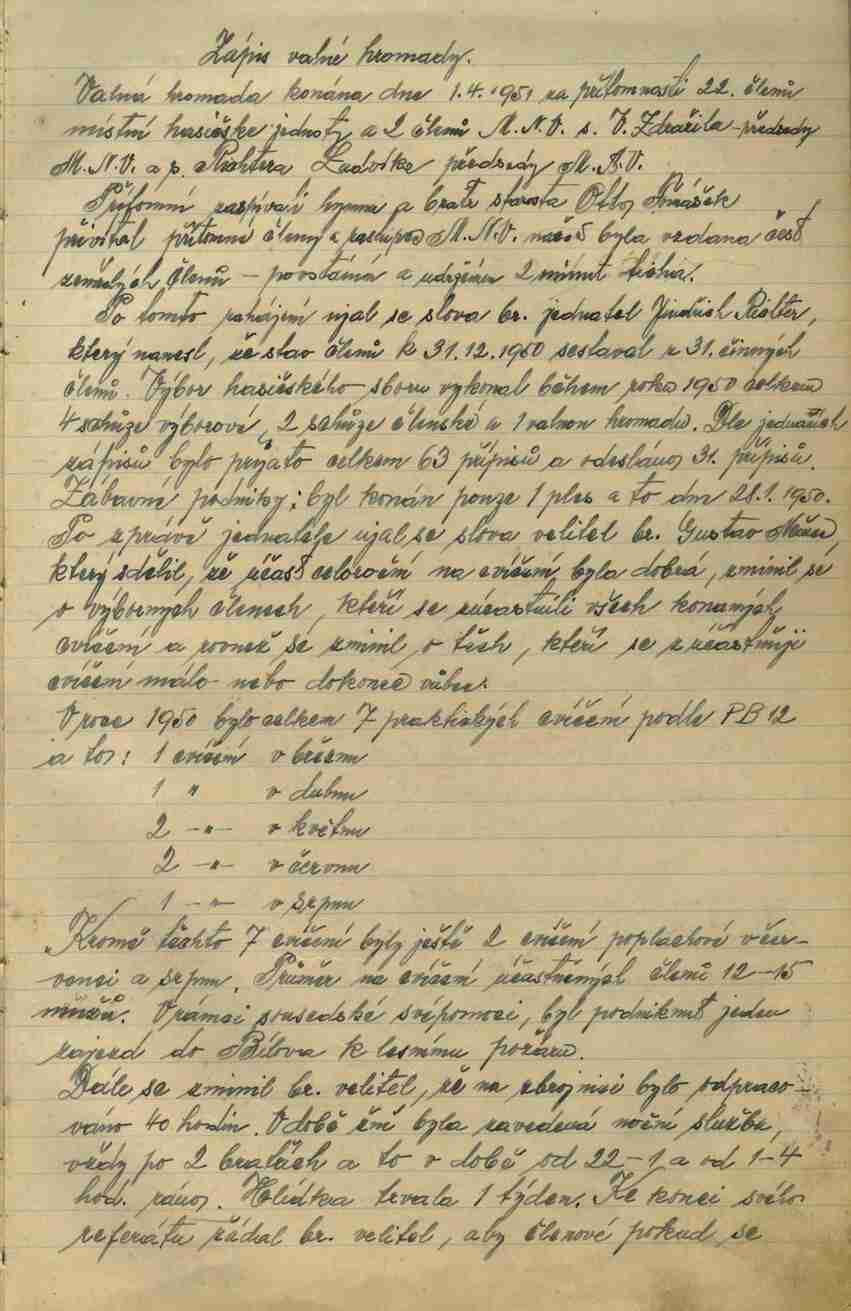 Zápis valné hromady.
Valná hromada konána dne 1.4.1951 za přítomnosti 22. členů
místní hasičske jednoty a 2 členů M.N.V. s. V. Zdražila - předsedy
M.N.V. a p. Richtera Ludvíka předsedy M.A.V.
Přítomní zazpívali hymnu a bratr starosta Otto
přivítal přítomné členy a zástupce M.N.V. načež byla vzdana česť
zemřelých členů - povstáním a udržením 2 minut ticha.
Po tomto zahájení ujal se slova br. jednatel Jindřich Richter,
který nanesl, že stav členů k 31.12.1950 sestaval z 31. činných
členů. Výbor hasičského sboru vykonal během roku 1950 celkem
4 schůze výborové, 2 schůze členské a 1 valnou hromadu. Dle jednacích
zápisů bylo prijato celkem 63 přípisů a odesláno 31. přípisů.
Zábavné podniky: byl konán pouze 1 ples a to dm 28.1.1950.
Po zprávě jednatele ujal se slova velitel br. Gustav
který sdělil, že účasť celoroční na cvičení byla dobrá, zminil se
o výborných členech, kteří se zúčastnili všech konaných
cvičení a rovnež se zminil o těch, kteří se zúčastňují
cvičení málo nebo dokonce vůbec.
V roce 1950 bylo celkem 7 praktických cvičení podle PB 12
a to: 1 cvičení v březnu
1 " v dubnu
2 -"- v květnu
2 -"- v červnu
1 -"- v srpnu
Kromě těchto 7 cvičení byly ještě 2 cvičení poplachové v čer-
venci a srpnu. Průměr na cvičení účastněných členů 12-15
mužů. V rámci sousedské svépomoci, byl podniknut jeden
zajezd do Bílova k lesnímu požáru.
Dále se zminil br. velitel, že na zbrojnici bylo odpraco-
váno 40 hodin. V době žní byla zavedená noční služba,
vždy po 2 bratřích a to v době od 22-1 a od 1-4
hod. ráno. Hlídka trvala 1 týden. Ke konci svého
referátu žádal br. velitel, aby členové pokud se